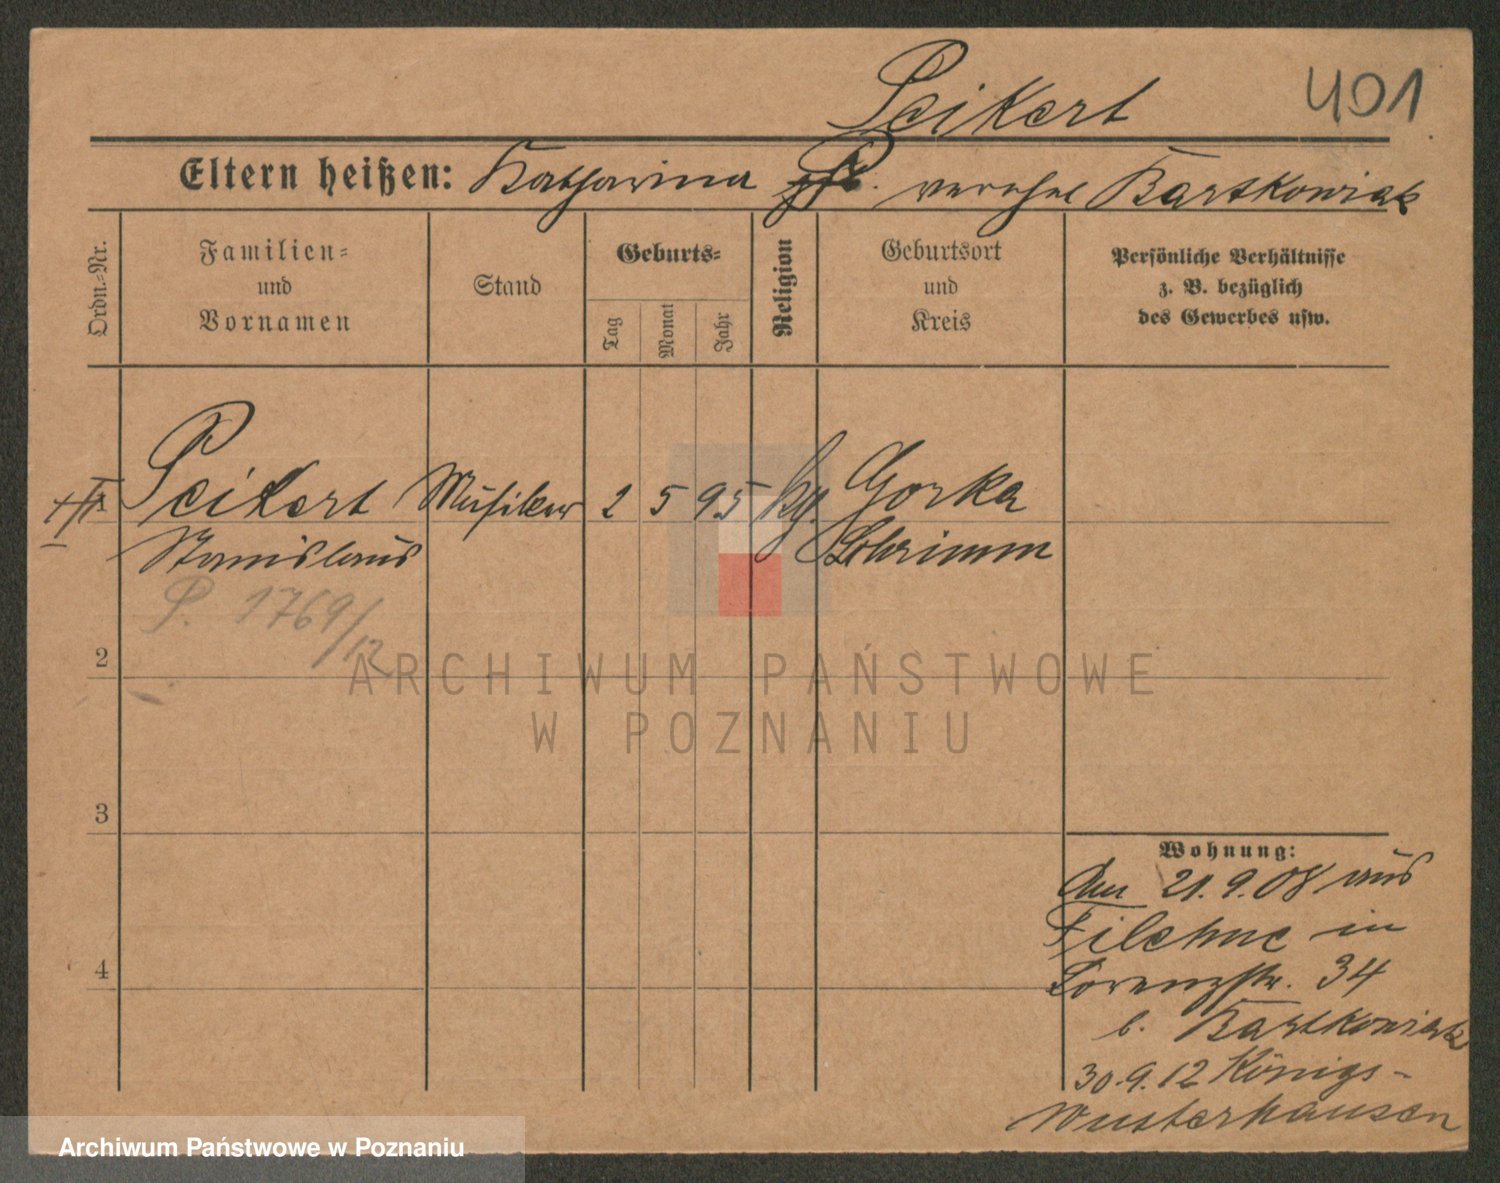 Peikert
401
Eltern heißen: Katharina P. verehel Bartkowiak
Ordn.-Nr.
Familien-
und
Vornamen
Stand
Geburts-
Tag
Monat
Jahr
Religion
Geburtsort
und
Kreis
Persönliche Verhältnisse
z. B. bezüglich
des Gewerbes usw.
1 Peikert Musiker 2 5 95 Gorka
Stanislaus Schrimm
P. 1769/12
2
3
4
Wohnung:
Am 21.9.08 aus
Filehne in
Lorenzstr. 34
b. Bartkowiak
30.9.12 Königs-
Wusterhausen
ARCHIWUM PAŃSTWOWE
W POZNANIU
Archiwum Państwowe w Poznaniu